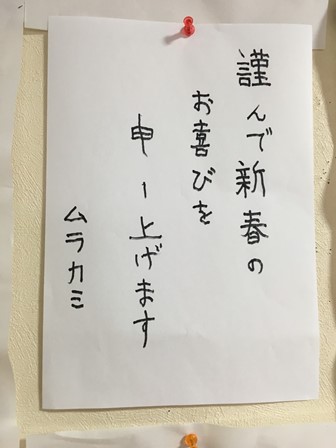 謹んで新春の
お喜びを
申し上げます
ムラカミ